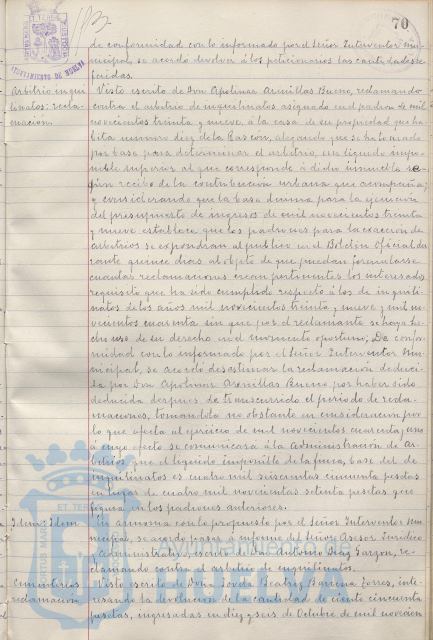 70
AYUNTAMIENTO DE HUELVA
de conformidad con lo informado por el Señor Interventor Mu-
nicipal, se acordó devolver á los peticionarios las cantidades re-
feridas.
Arbitrio inqui-
linatos: recla-
mación.
Visto escrito de Don Apolinar Arenillas Bueno, reclamando
contra el arbitrio de inquilinatos asignado en el padron de mil
novecientos treinta y nueve, á la casa de su propiedad que ha-
bita número diez de la Rascon, alegando que se ha tomado
por base para determinar el arbitrio, un líquido impo-
nible superior al que corresponde á dicho inmueble se-
gún recibo de la contribución urbana que acompaña;
y considerando que la base decima para la ejecución
del presupuesto de ingresos de mil novecientos treinta
y nueve establece que los padrones para la exacción de
arbitrios se expondrán al público en el Boletin Oficial du-
rante quince dias al objeto de que puedan formularse
cuantas reclamaciones crean pertinentes los interesados,
requisito que ha sido cumplido respecto á los de inquili-
natos de los años mil novecientos treinta y nueve y mil no-
vecientos cuarenta sin que por el reclamante se haya he-
cho uso de su derecho en el momento oportuno; De confor-
midad con lo informado por el Señor Interventor Mu-
nicipal, se acordó desestimar la reclamación deduci-
da por Don Apolinar Arenillas Bueno por haber sido
deducida despues de transcurrido el periodo de recla-
maciones, tomandola no obstante en consideración por
lo que afecta al ejercicio de mil novecientos cuarenta y uno
a cuyo efecto se comunicará á la Administración de Ar-
bitrios que el líquido imponible de la finca, base del de
inquilinatos es cuatro mil seiscientas cincuenta pesetas
en lugar de cuatro mil novecientas setenta pesetas que
figura en los padrones anteriores.
Idem: Idem
En armonia con lo propuesto por el Señor Interventor Mu-
nicipal, se acordó pasar á informe del Señor Asesor Jurídico
Administrativo, escrito de Don Antonio Diaz Garzon, re-
clamando contra el arbitrio de inquilinatos.
Cementerios
reclamación
Visto escrito de Doña Beatriz Barrena Torres, inte-
resando la devolución de la cantidad de ciento cincuenta
pesetas, ingresadas en diez y seis de Octubre de mil novecien